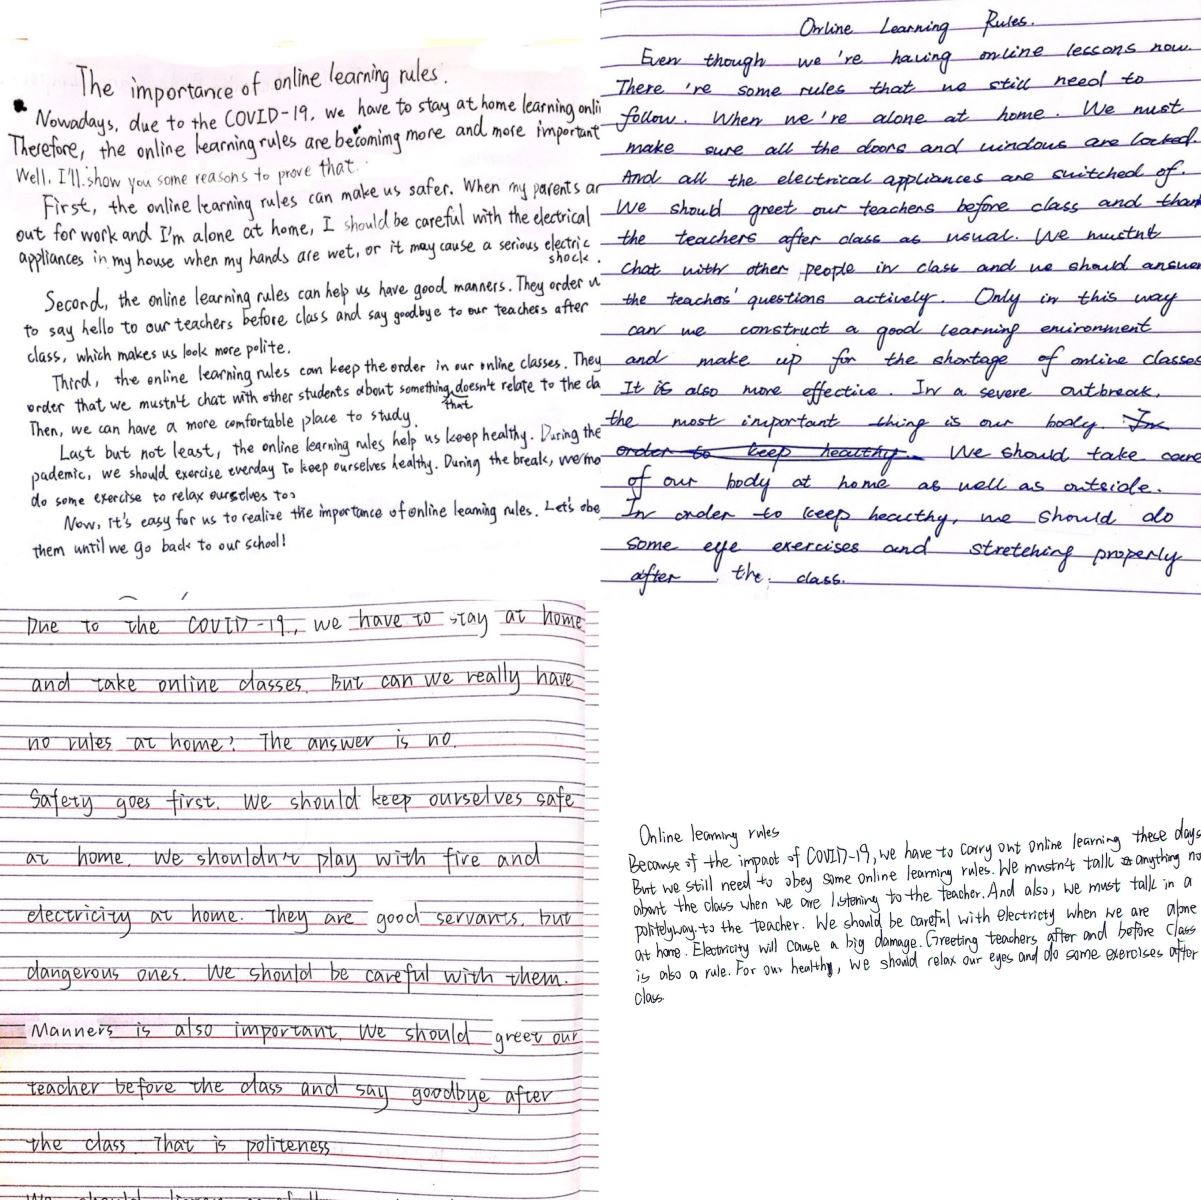 The importance of online learning rules.
Nowadays, due to the COVID-19, we have to stay at home learning onli
Therefore, the online learning rules are becoming more and more important
Well, I'll show you some reasons to prove that.
First, the online learning rules can make us safer. When my parents ar
out for work and I'm alone at home, I should be careful with the electrical
appliances in my house when my hands are wet, or it may cause a serious electric
shock.
Second, the online learning rules can help us have good manners. They order u
to say hello to our teachers before class and say goodbye to our teachers after
class, which makes us look more polite.
Third, the online learning rules can keep the order in our online classes. They
order that we mustn't chat with other students about something that doesn't relate to the cla
Then, we can have a more comfortable place to study.
Last but not least, the online learning rules help us keep healthy. During the
pademic, we should exercise everday to keep ourselves healthy. During the break, we mo
do some exercise to relax ourselves too
Now, it's easy for us to realize the importance of online learning rules. Let's obe
them until we go back to our school!
Online Learning Rules.
Even though we 're having online lessons now.
There 're some rules that we still need to
follow. When we're alone at home. We must
make sure all the doors and windows are locked.
And all the electrical appliances are switched of.
We should greet our teachers before class and than
the teachers after class as usual. We mustnt
chat with other people in class and we should answer
the teaches' questions actively. Only in this way
can we construct a good learning environment
and make up for the shortage of online classes
It is also more effective. In a severe outbreak,
the most important thing is our body. In
order to keep healthy. We should take care
of our body at home as well as outside.
In order to keep heacthy, we should do
some eye exercises and stretching properly
after the class.
Due to the COVID-19, we have to stay at home
and take online classes. But can we really have
no rules at home? The answer is no.
Safety goes first. We should keep ourselves safe
at home. We shouldn't play with fire and
electricity at home. They are good servants, but
dangerous ones. We should be careful with them.
Manners is also important. We should greet our
teacher before the class and say goodbye after
the class. That is politeness
Online learning rules
Because of the impact of COVID-19, we have to carry out online learning these days
But we still need to obey some online learning rules. We mustn't talk anything no
about the class when we are listening to the teacher. And also, we must talk in a
politelyway to the teacher. We should be careful with electricty when we are alone
at home. Electricity will cause a big damage. Greeting teachers after and before class
is also a rule. For our healthy, we should relax our eyes and do some exercises after
class.